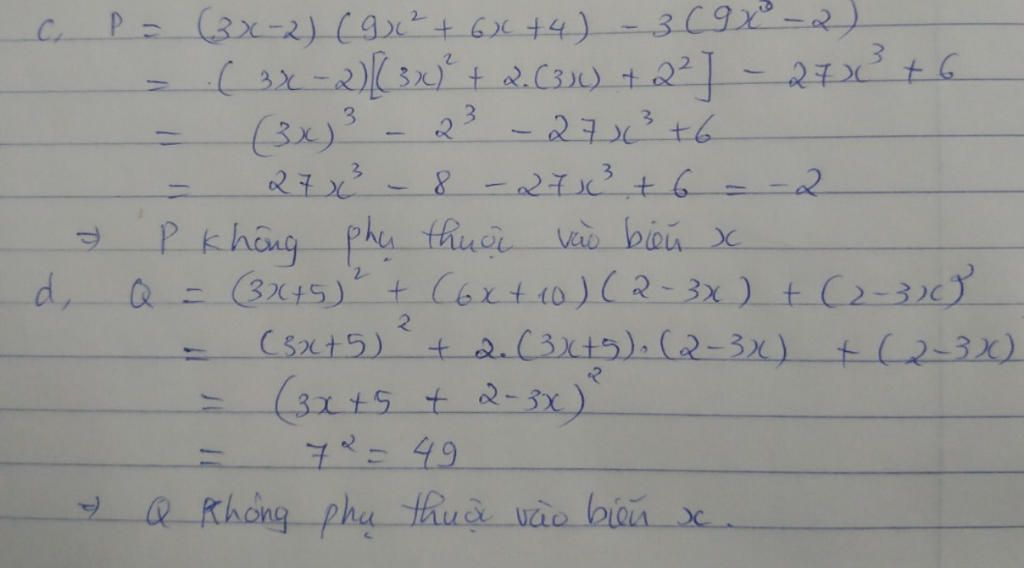 c, P = (3x-2)(9x² + 6x + 4) - 3(9x³ - 2)
= (3x-2)[(3x)² + 2.(3x) + 2²] - 27x³ + 6
= (3x)³ - 2³ - 27x³ + 6
= 27x³ - 8 - 27x³ + 6 = -2
⇒ P không phụ thuộc vào biến x
d, Q = (3x+5)² + (6x+10)(2-3x) + (2-3x)²
= (3x+5)² + 2.(3x+5).(2-3x) + (2-3x)
= (3x+5 + 2-3x)²
= 7² = 49
⇒ Q không phụ thuộc vào biến x.